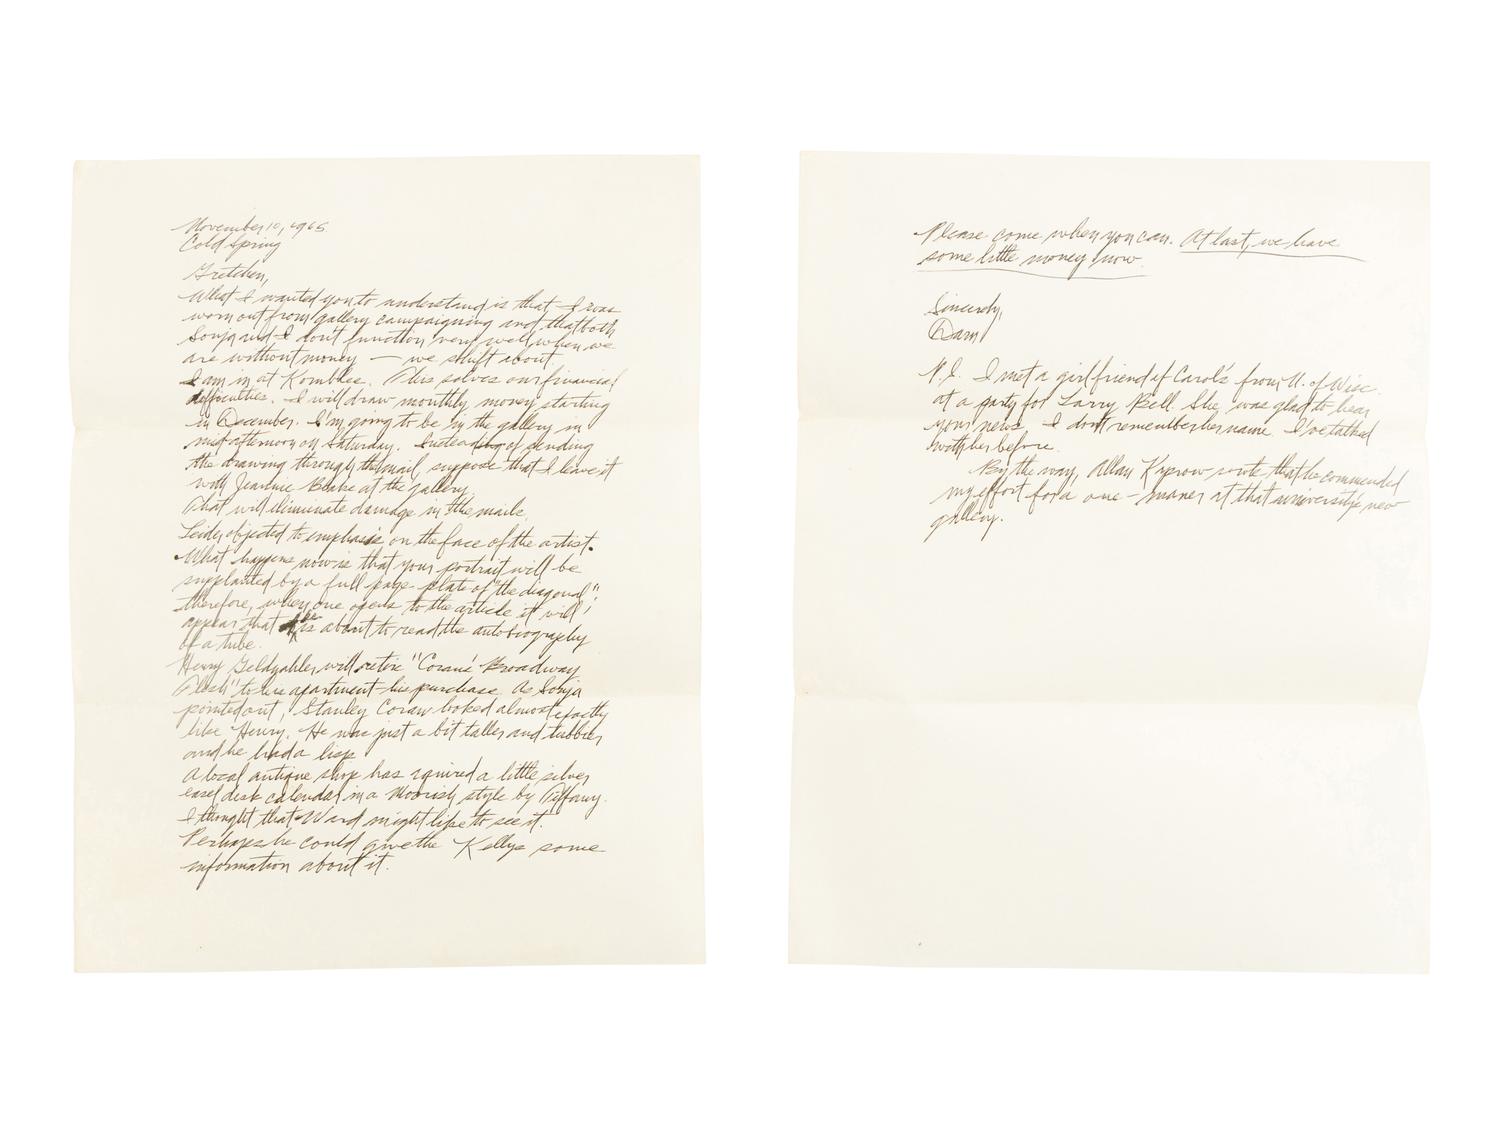 November 10, 1965
Cold Spring
Gretchen,
What I wanted you to understand is that I was
worn out from gallery campaigning and that both
Sonja and I don't function very well when we
are without money — we shift about
I am in at Kornblee. This solves our financial
difficulties. I will draw monthly money starting
in December. I'm going to be in the gallery in
mid afternoon on Saturday. Instead of sending
the drawing through the mail, suppose that I leave it
with Jeannie Blake at the gallery.
That will eliminate damage in the mails.
Leider objected to emphasis on the face of the artist.
What happens now is that your portrait will be
supplanted by a full page plate of "the diagonal"
therefore, when one opens to the article it will
appear that he is about to read the autobiography
of a tube.
Henry Geldzahler will retire "Coran's Broadway
Flesh" to his apartment – his purchase. As Sonja
pointed out, Stanley Coran looked almost exactly
like Henry. He was just a bit taller and tubbier
and he had a lisp
A local antique shop has aquired a little silver
easel desk calendar in a Moorish style by Tiffany.
I thought that Ward might like to see it.
Perhaps he could give the Kellys some
information about it.
Please come when you can. At last, we have
some little money now.
Sincerely,
Dan
P.S. I met a girlfriend of Carol's from U. of Wisc.
at a party for Larry Bell. She was glad to hear
your news. I don't remember her name. I've talked
with her before.
By the way, Allan Kaprow wrote that he commended
my effort for a one-maner at that university's new
gallery.